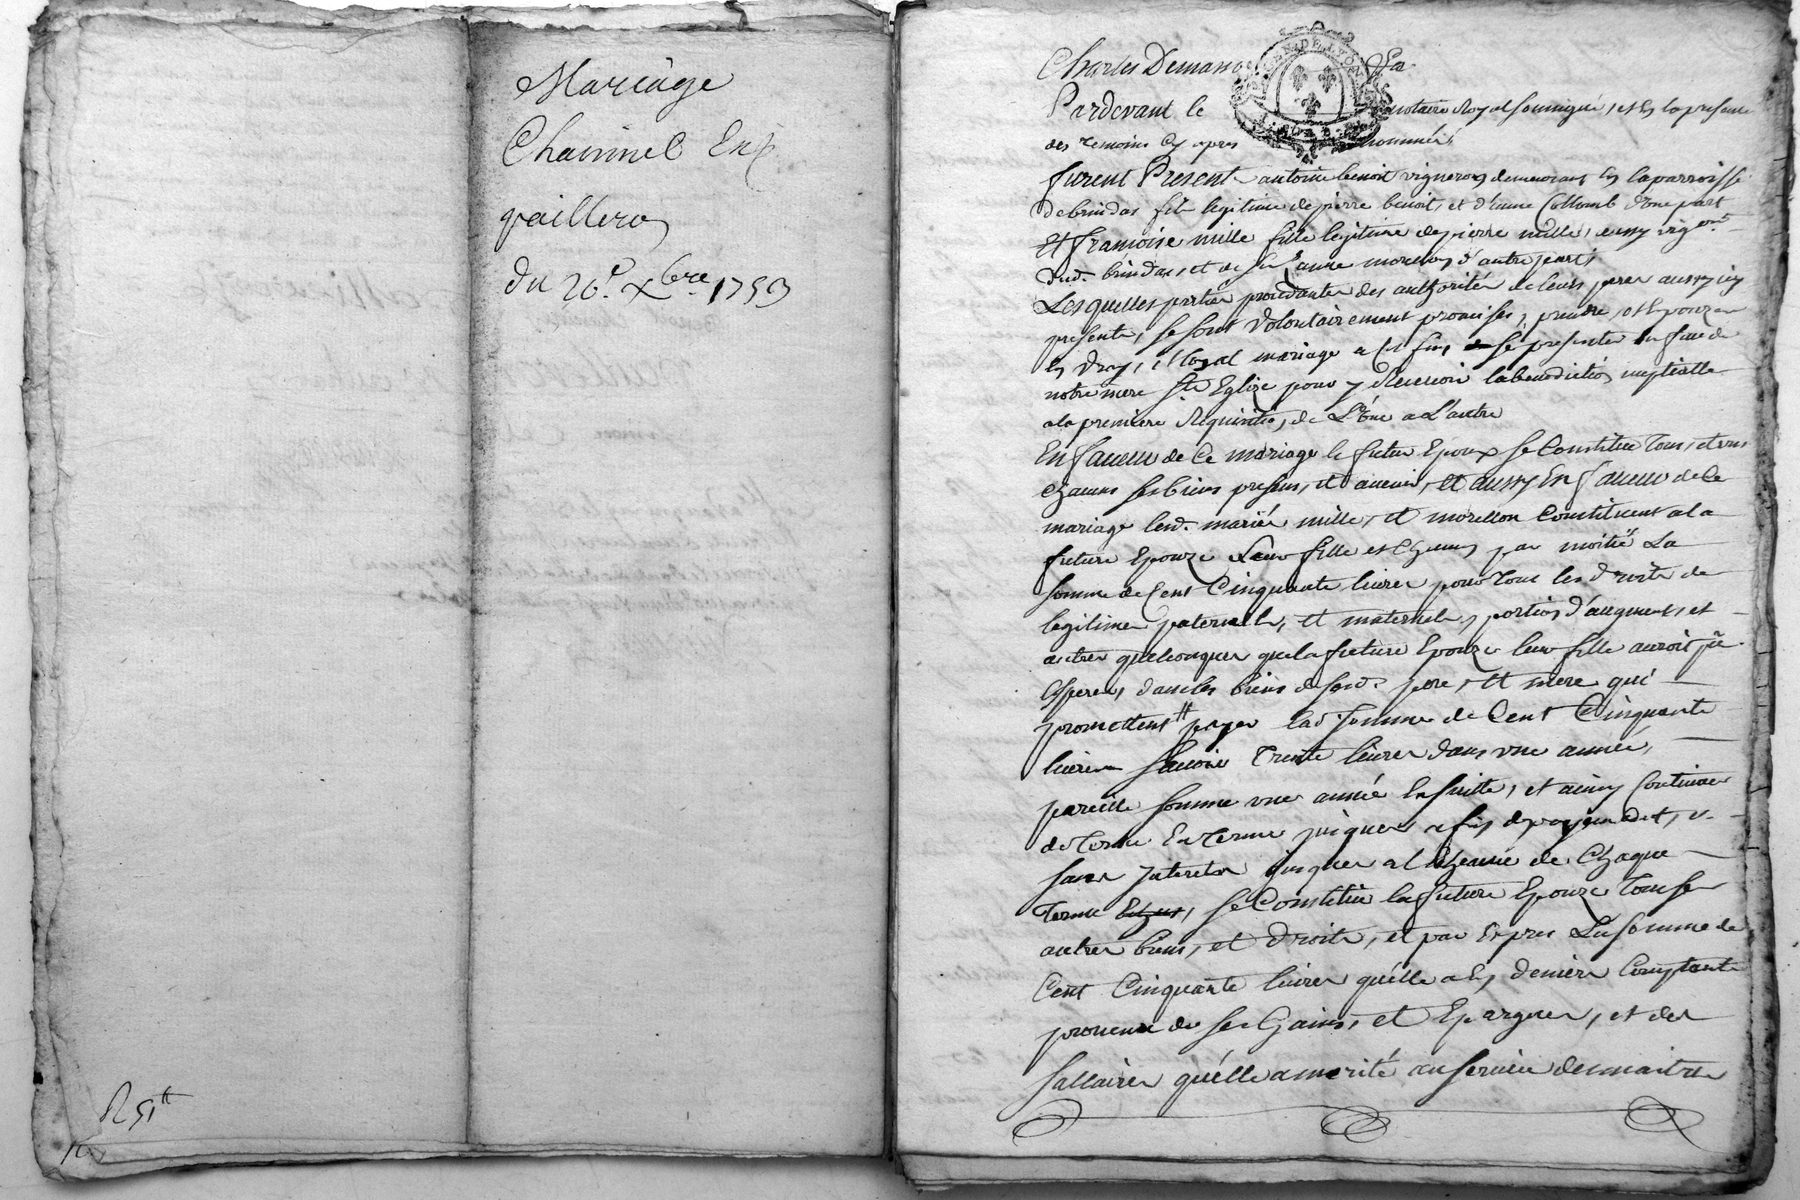 Mariage
Chaininel Et
vaillero
du 26e. xbre 1753
R 5tt
Pardevant le notaire Royal soussigné, et En la presence
des temoins Cy apres nommés
furent Presents antoine benoit vigneron demeurant En la parroisse
de brindas fils legitime de pierre benoit, et d'anne Collomb d'une part
Et francoise mille fille legitime de pierre mille, aussy vigon.
dud. brindas et de anne morellon d'autre part,
Lesquelles parties procedantes des authorités de leurs peres aussy icy
presents, se sont volontairement promises, prendre, et Epouzer
En vray, et loyal mariage a Ces fins se présenter En face de
notre mere Ste Eglize pour y Recevoir la benediction nuptialle
a la premiere Requisition, de L'une a L'autre
En faveur de Ce mariage le futur Epoux se Constitue tous, et uns
Chacuns ses biens presens, et avenir, Et aussy En faveur de Ce
mariage lesd. mariés mille, et morellon Constituent a la
future Epouze Leur fille et Chacun par moitié La
somme de Cent Cinquante livres pour tous les droits de
legitimes paternels, et maternels, portion d'augment, et
autres quelconques que la future Epouze leur fille auroit pû
Esperer, dans les biens de sesd. pere, et mere qui
promettent payer lad. somme de Cent Cinquante
livres scavoir trente livres dans une année,
pareille somme une année Ensuitte, et ainsy Continuer
de terme En terme jusques a fin de payement,
sans Interets jusques a l'Echeance de Chaque
terme se Constitue la future Epouze tous ses
autres biens, et droits, et par Expres La somme de
Cent Cinquante livres qu'elle a En deniers Comptants
provenu de ses Gains, et Epargnes, et des
sallaires qu'elle a merité au service des maitres